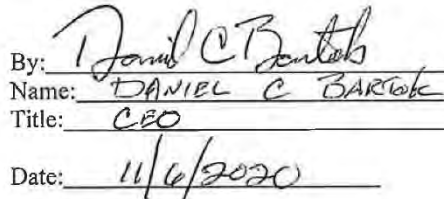 By: Daniel C Bartok
Name: DANIEL C BARTOK
Title: CEO
Date: 11/6/2020